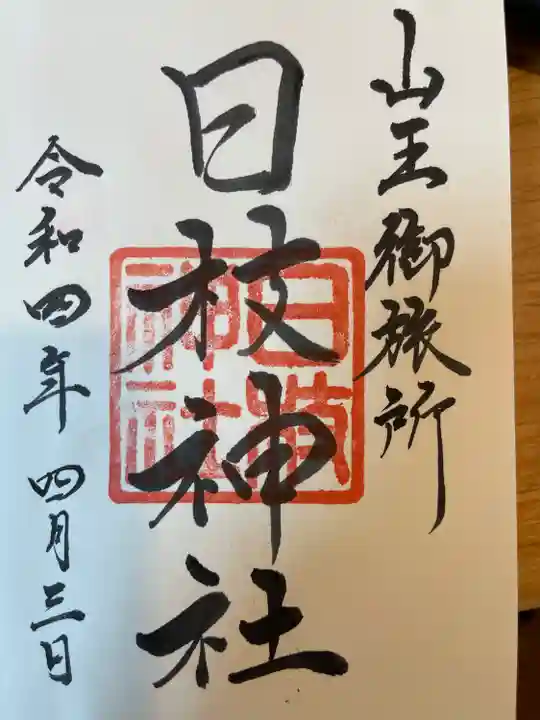 山王御旅所
日枝神社
日枝神社
令和四年四月三日